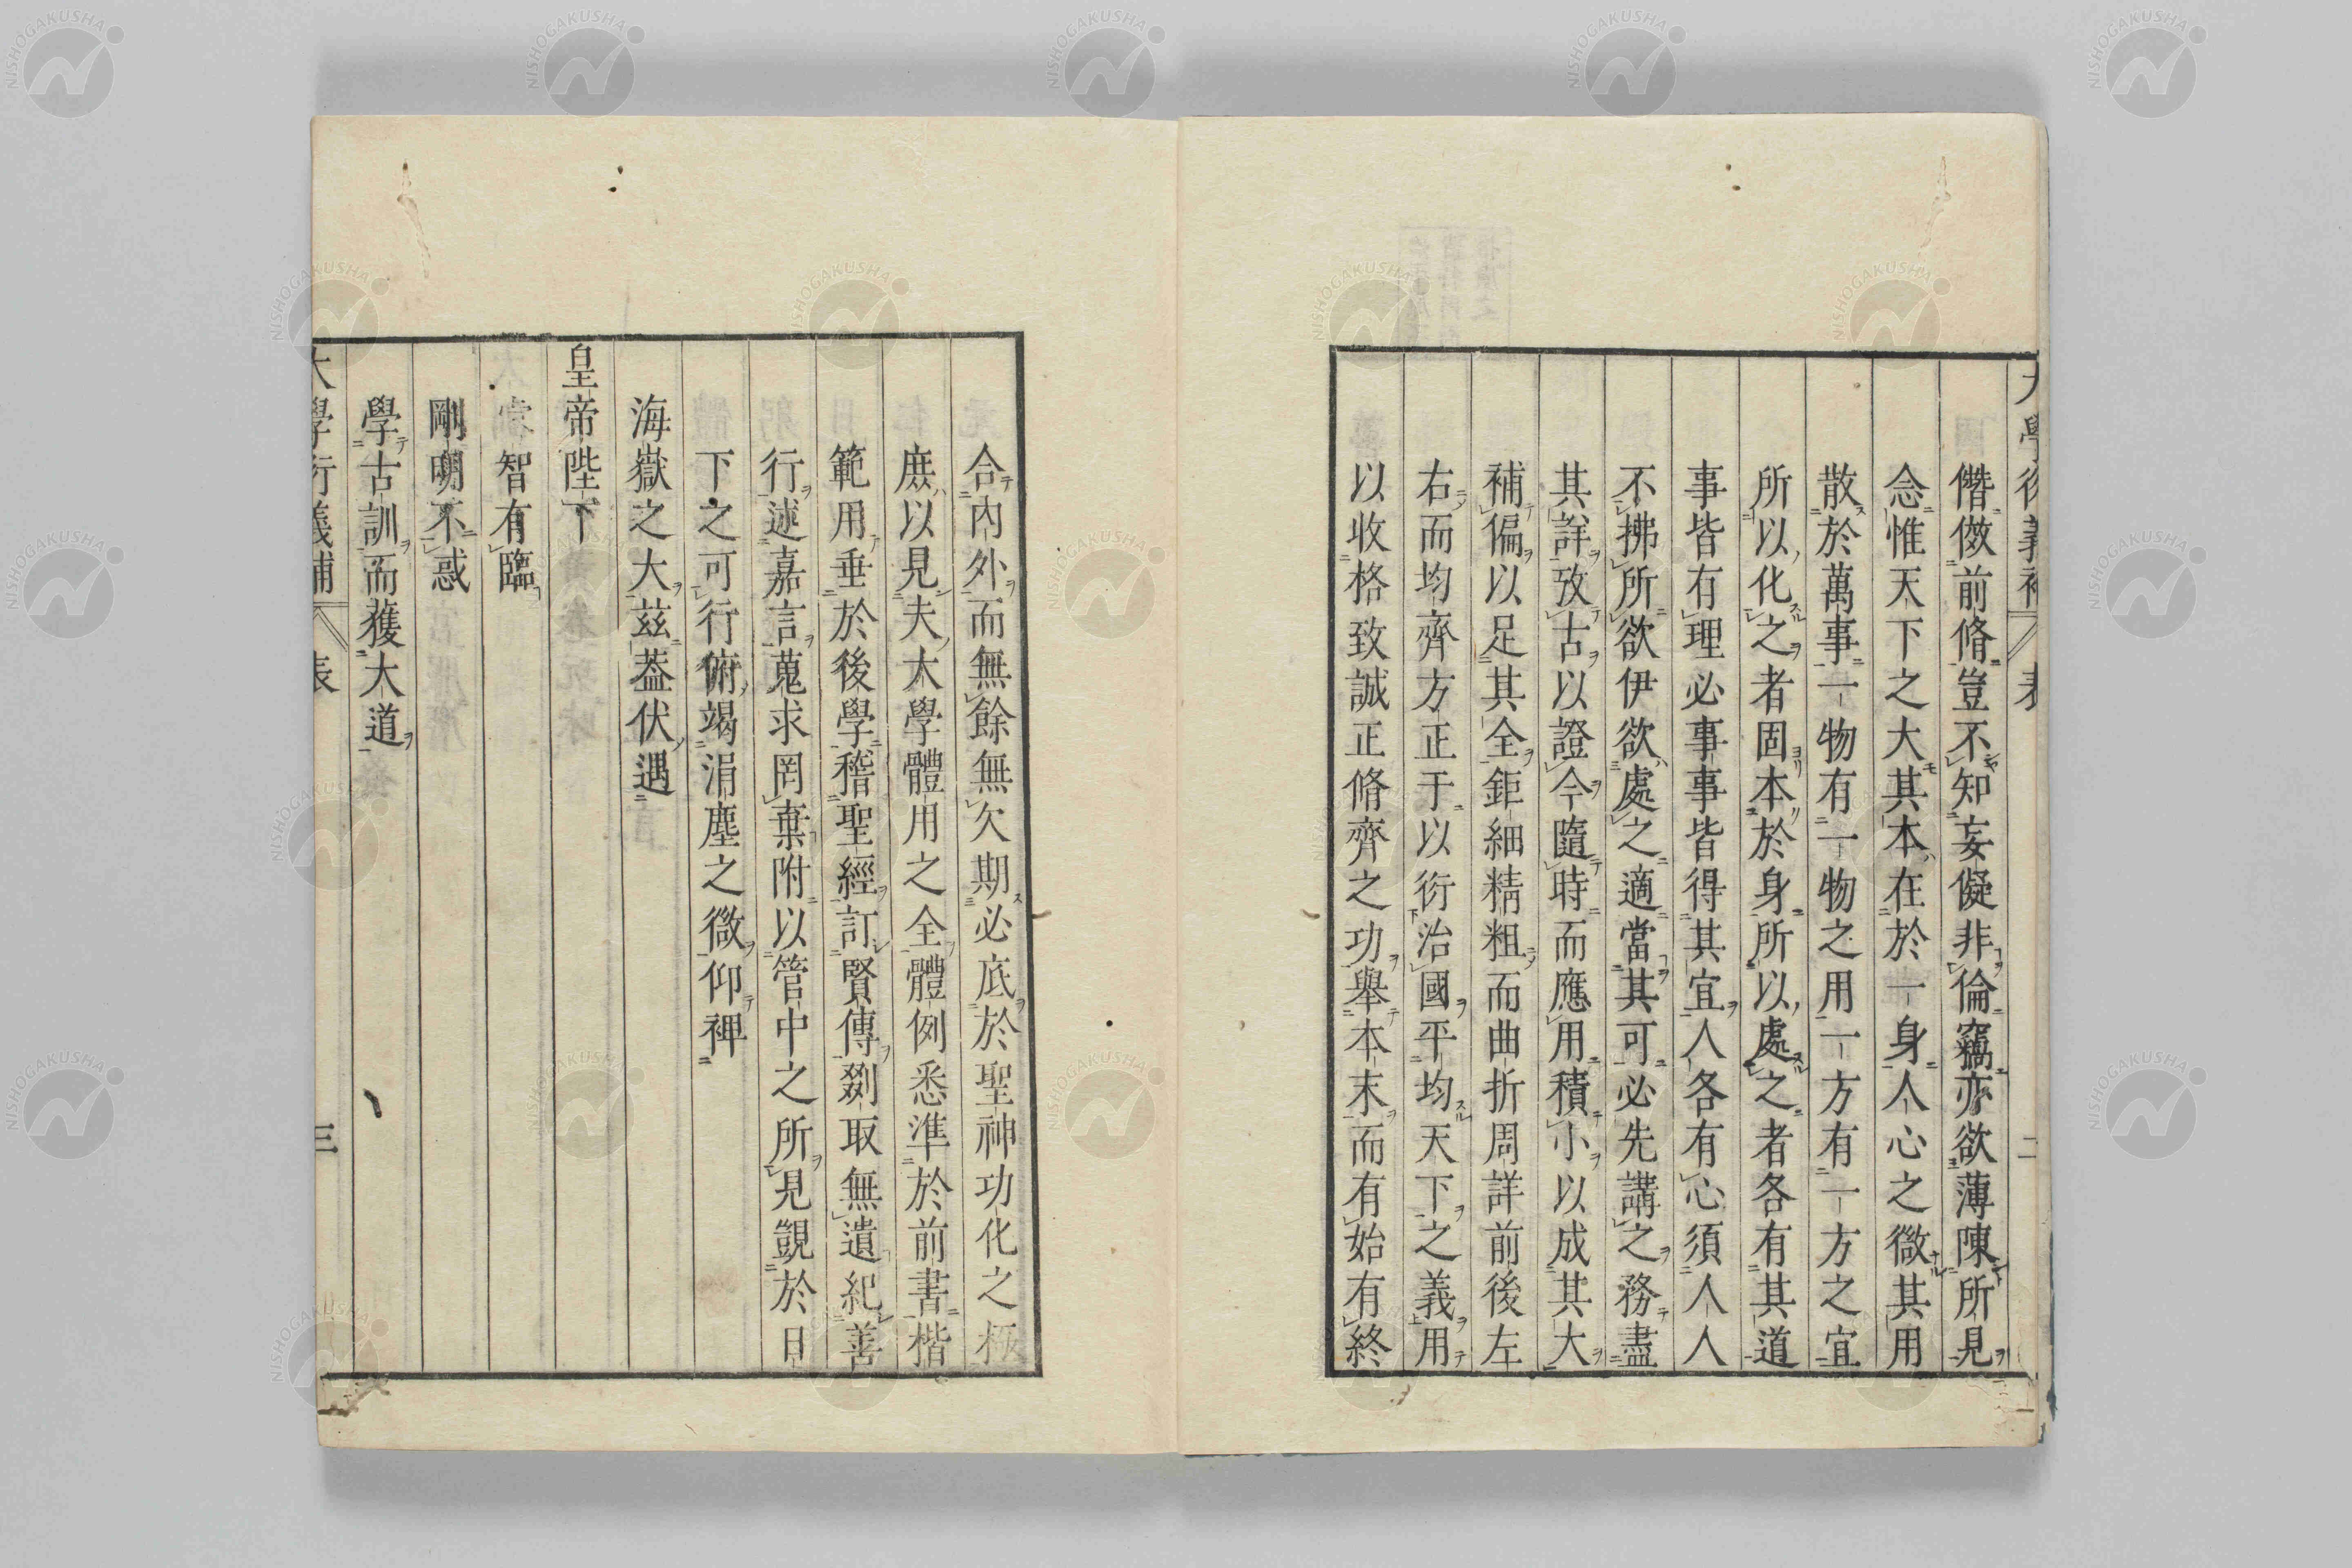 僭倣前脩豈不知妄儗非倫竊亦欲薄陳所見
念惟天下之大其本在於一身人心之微其用
散於萬事一物有一物之用一方有一方之宜
所以化之者固本於身所以處之者各有其道
事皆有理必事事皆得其宜人各有心須人人
不拂所欲伊欲處之適當其可必先講之務盡
其詳攷古以證今隨時而應用積小以成其大
補偏以足其全鉅細精粗而曲折周詳前後左
右而均齊方正于以衍治國平均天下之義用
以收格致誠正脩齊之功舉本末而有始有終
合內外而無餘無欠期必底於聖神功化之極
庶以見夫大學體用之全體例悉準於前書楷
範用垂於後學稽聖經訂賢傳剟取無遺紀善
行述嘉言蒐求罔棄附以管中之所見覬於日
下之可行俯竭涓塵之微仰裨
海嶽之大茲葢伏遇
皇帝陛下
智有臨
剛明不惑
學古訓而獲大道
大學衍義補 表 三